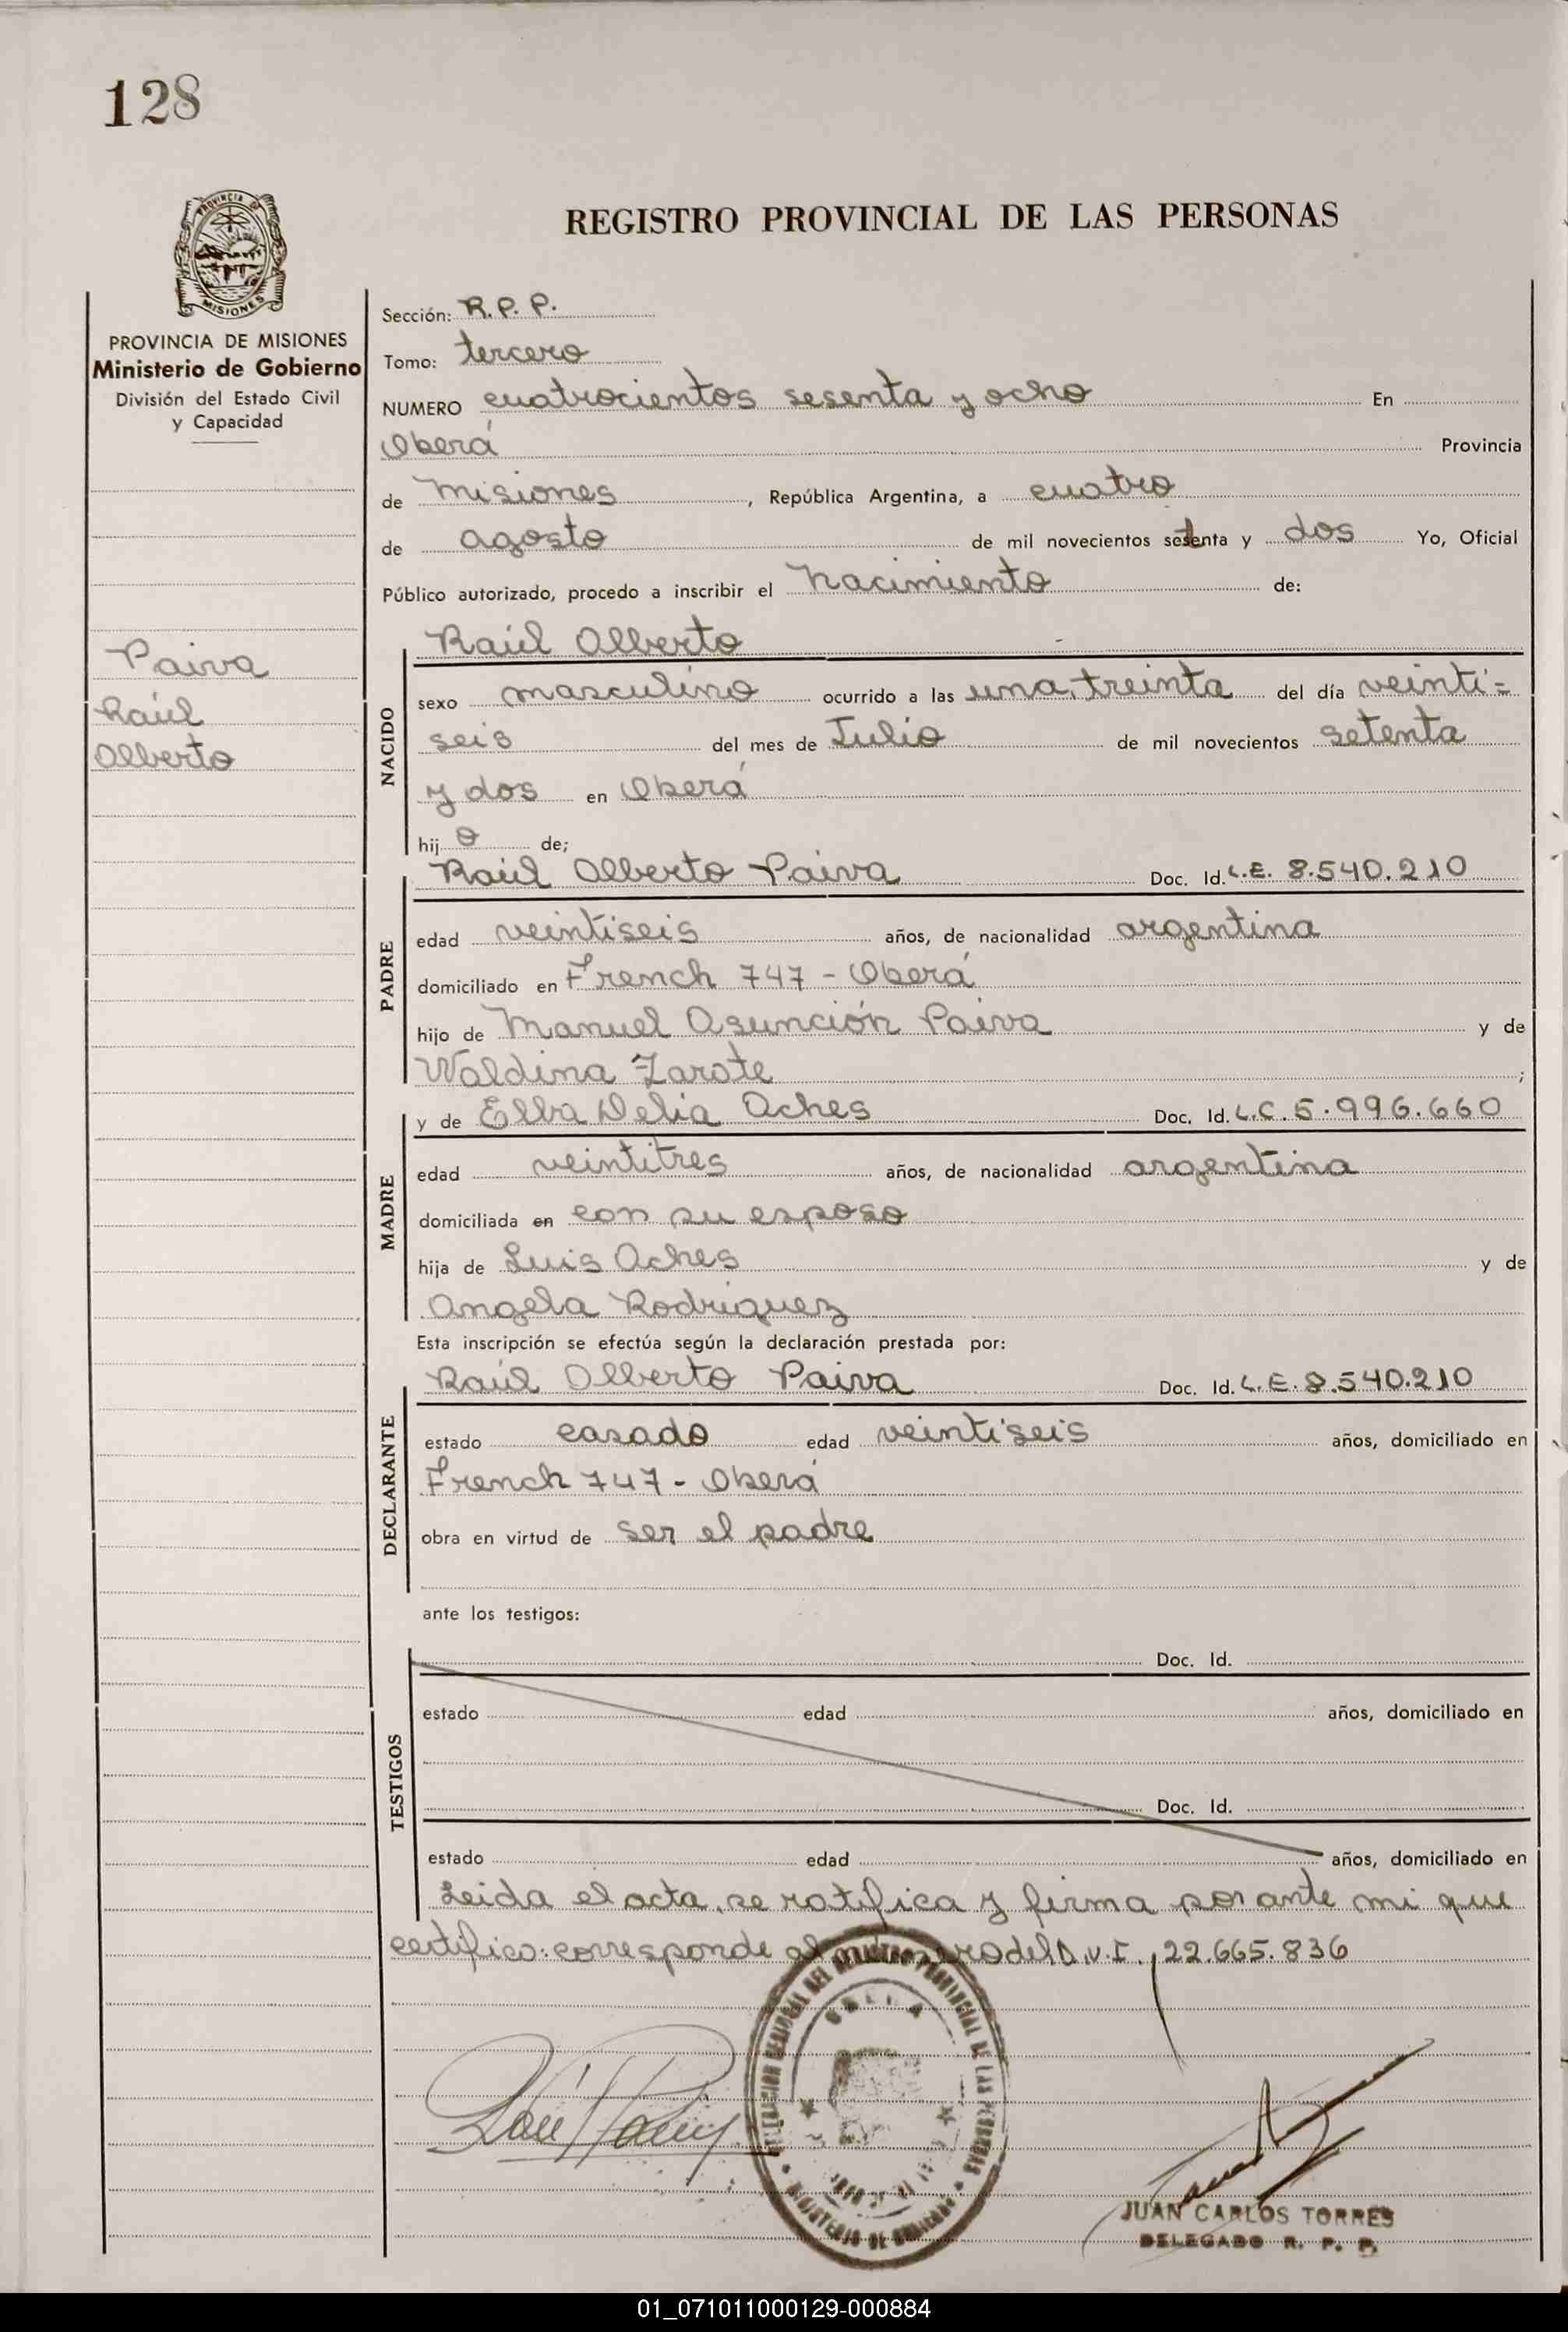 128
REGISTRO PROVINCIAL DE LAS PERSONAS
PROVINCIA DE MISIONES
PROVINCIA DE MISIONES
Ministerio de Gobierno
División del Estado Civil
y Capacidad
Paiva
Raúl
Alberto
Sección: R.P.P.
Tomo: tercero
NUMERO cuatrocientos sesenta y ocho En
Oberá Provincia
de Misiones, República Argentina, a cuatro
de agosto de mil novecientos setenta y dos Yo, Oficial
Público autorizado, procedo a inscribir el Nacimiento de:
NACIDO
Raúl Alberto
sexo masculino ocurrido a las una, treinta del día veinti=
seis del mes de Julio de mil novecientos setenta
y dos en Oberá
hijo de;
PADRE
Raúl Alberto Paiva Doc. Id. L.E. 8.540.210
edad veintiseis años, de nacionalidad argentina
domiciliado en French 747 - Oberá
hijo de Manuel Asunción Paiva y de
Waldina Zarate ;
MADRE
y de Elba Delia Aches Doc. Id. L.C. 5.996.660
edad veintitres años, de nacionalidad argentina
domiciliada en con su esposo
hija de Luis Aches y de
Angela Rodriguez
Esta inscripción se efectúa según la declaración prestada por:
DECLARANTE
Raúl Alberto Paiva Doc. Id. L.E. 8.540.210
estado casado edad veintiseis años, domiciliado en
French 747 - Oberá
obra en virtud de ser el padre
ante los testigos:
TESTIGOS
Doc. Id.
estado edad años, domiciliado en
Doc. Id.
estado edad años, domiciliado en
Leida el acta, se ratifica y firma por ante mi que
certifico: corresponde al número del D.N.I. 22.665.836
JUAN CARLOS TORRES
DELEGADO R. P. P.
01_071011000129-000884